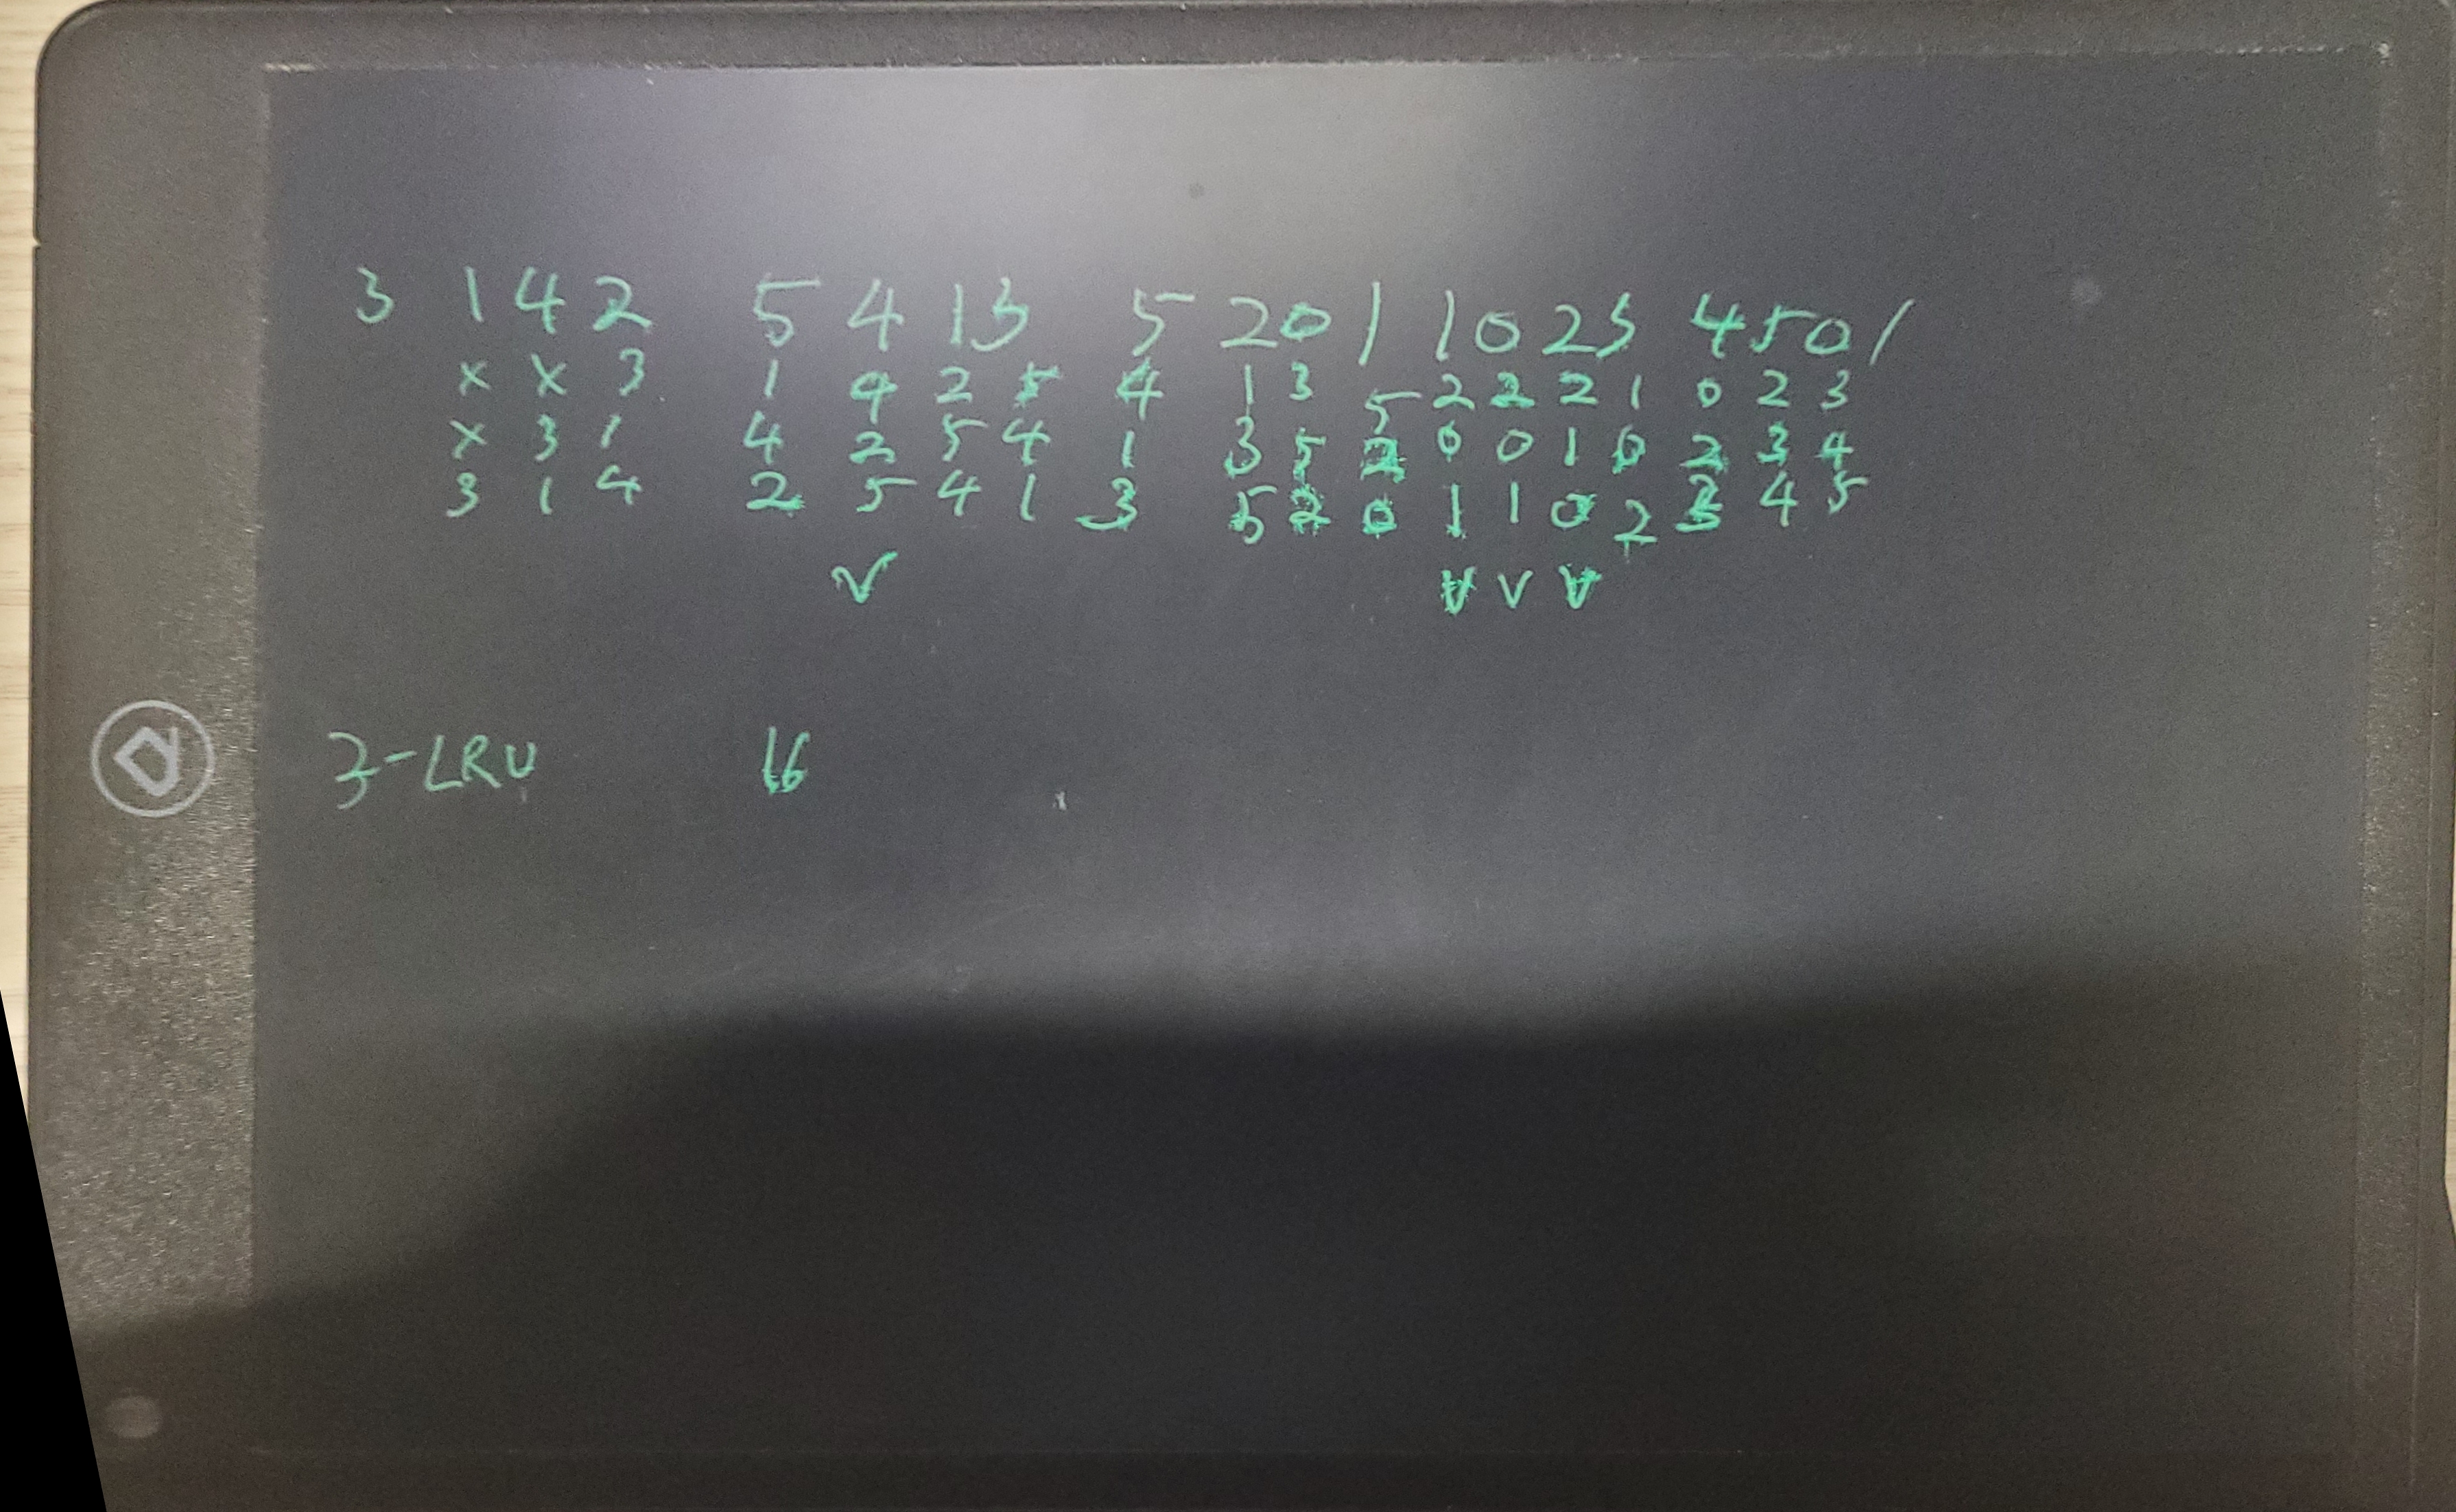 3 1 4 2 5 4 1 3 5 2 0 1 1 0 2 3 4 5 0 1
x x 3 1 4 2 5 4 1 3 5 2 2 2 1 0 2 3
x 3 1 4 2 5 4 1 3 5 2 0 0 1 0 2 3 4
3 1 4 2 5 4 1 3 5 2 0 1 1 0 2 3 4 5
v v v v
3-LRU 16